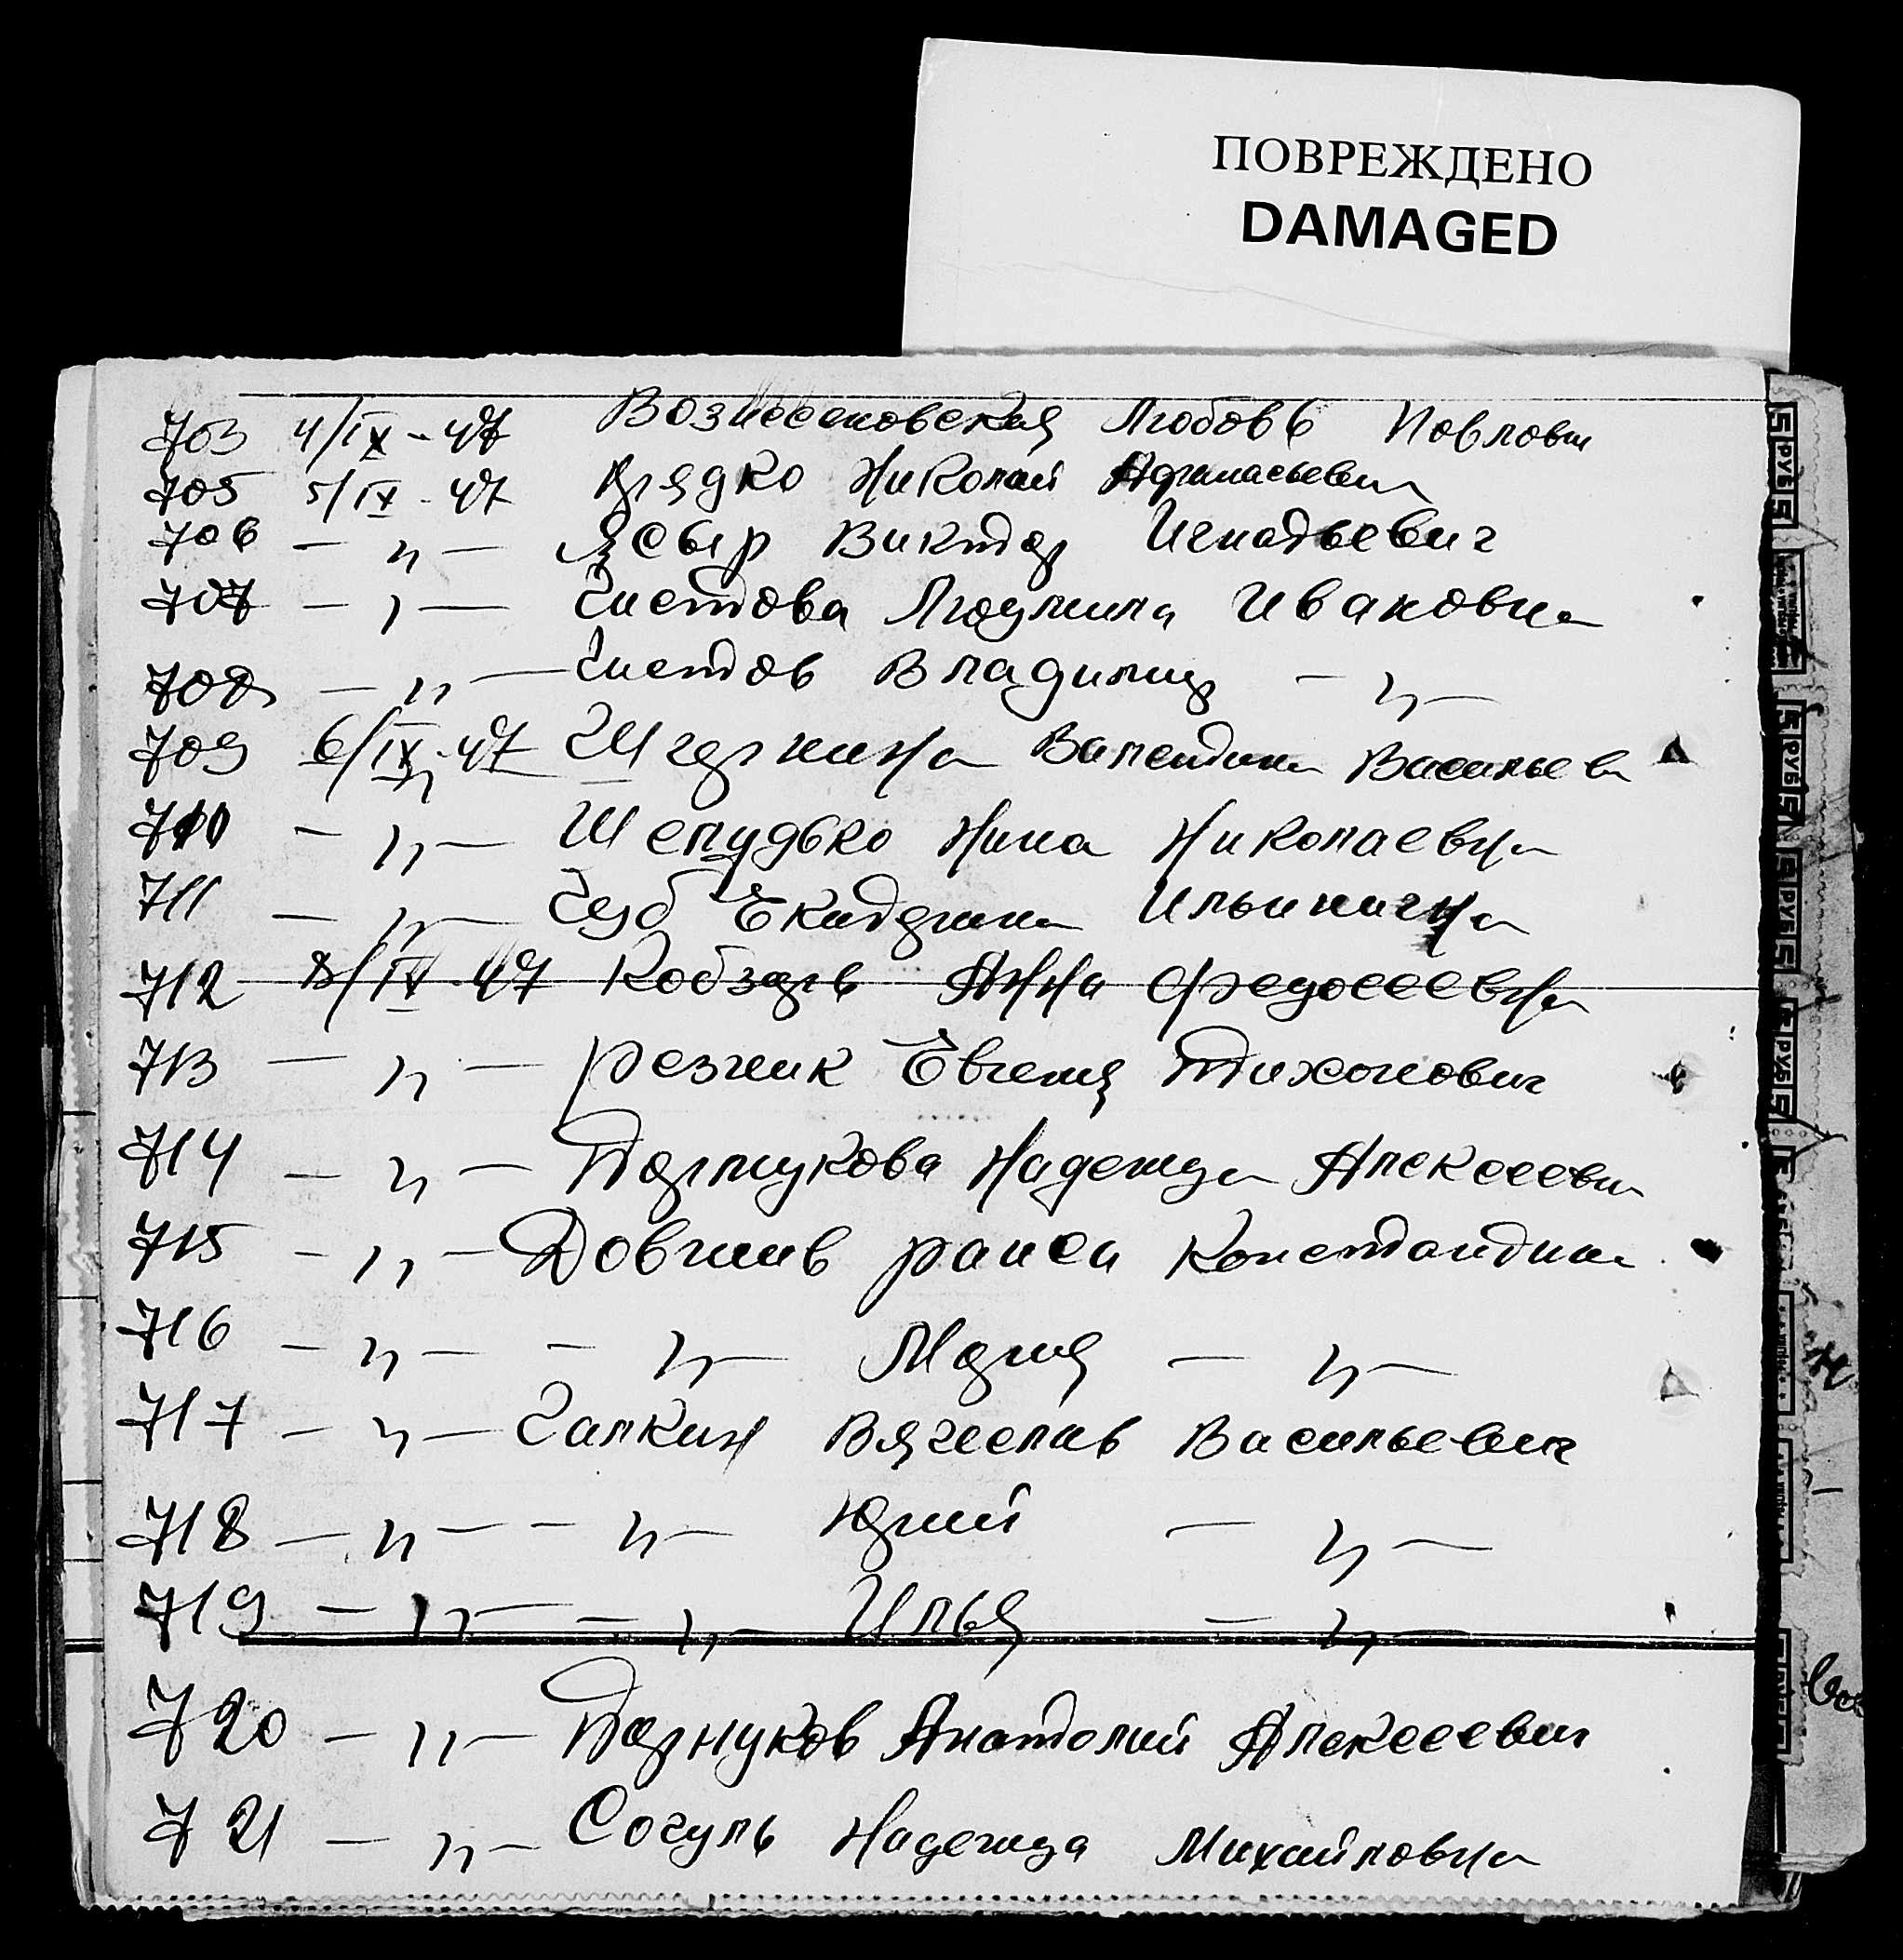 ПОВРЕЖДЕНО
DAMAGED
703 4/IX - 47 Вознесеновская Любовь Повловн
705 5/IX - 47 Прядко Николай Афанасьевич
706 — „ — Ясыр Виктор Игнатьевич
707 — „ — Чистова Людмила Ивановна
708 — „ — Чистов Владимир — „ —
709 6/IX - 47 Валентина Васильев
710 — „ — Шепудько Нина Николаевна
711 — „ — Чуб Екатерина Ильинична
712 8/IX - 47 Кобзарь Анна Федосеевна
713 — „ — Резник Евгений Тихонович
714 — „ — Надежда Алексеевн
715 — „ — Довгий Раиса Константин
716 — „ — — „ — Мария — „ —
717 — „ — Галкин Вячеслав Васильевич
718 — „ — — „ — Юрий — „ —
719 — „ — — „ — Илья — „ —
720 — „ — Анатолий Алексеевич
721 — „ — Согуль Надежда Михайловна
5 РУБ 5
5 РУБ 5
5 РУБ 5
5 РУБ 5